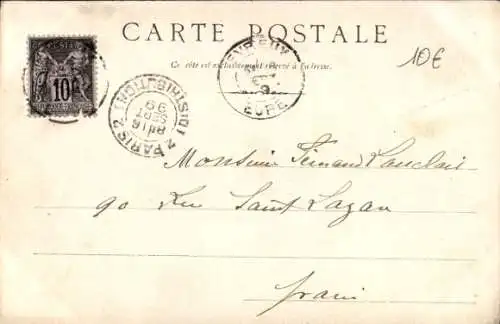 CARTE POSTALE
Ce côté est exclusivement réservé à l'adresse.
10€
10
EVREUX
EURE
PARIS 2 DISTRIBUTION
18
SEPT
99
Monsieur Fernand Vauclair
90 Rue Saint Lazare
Paris